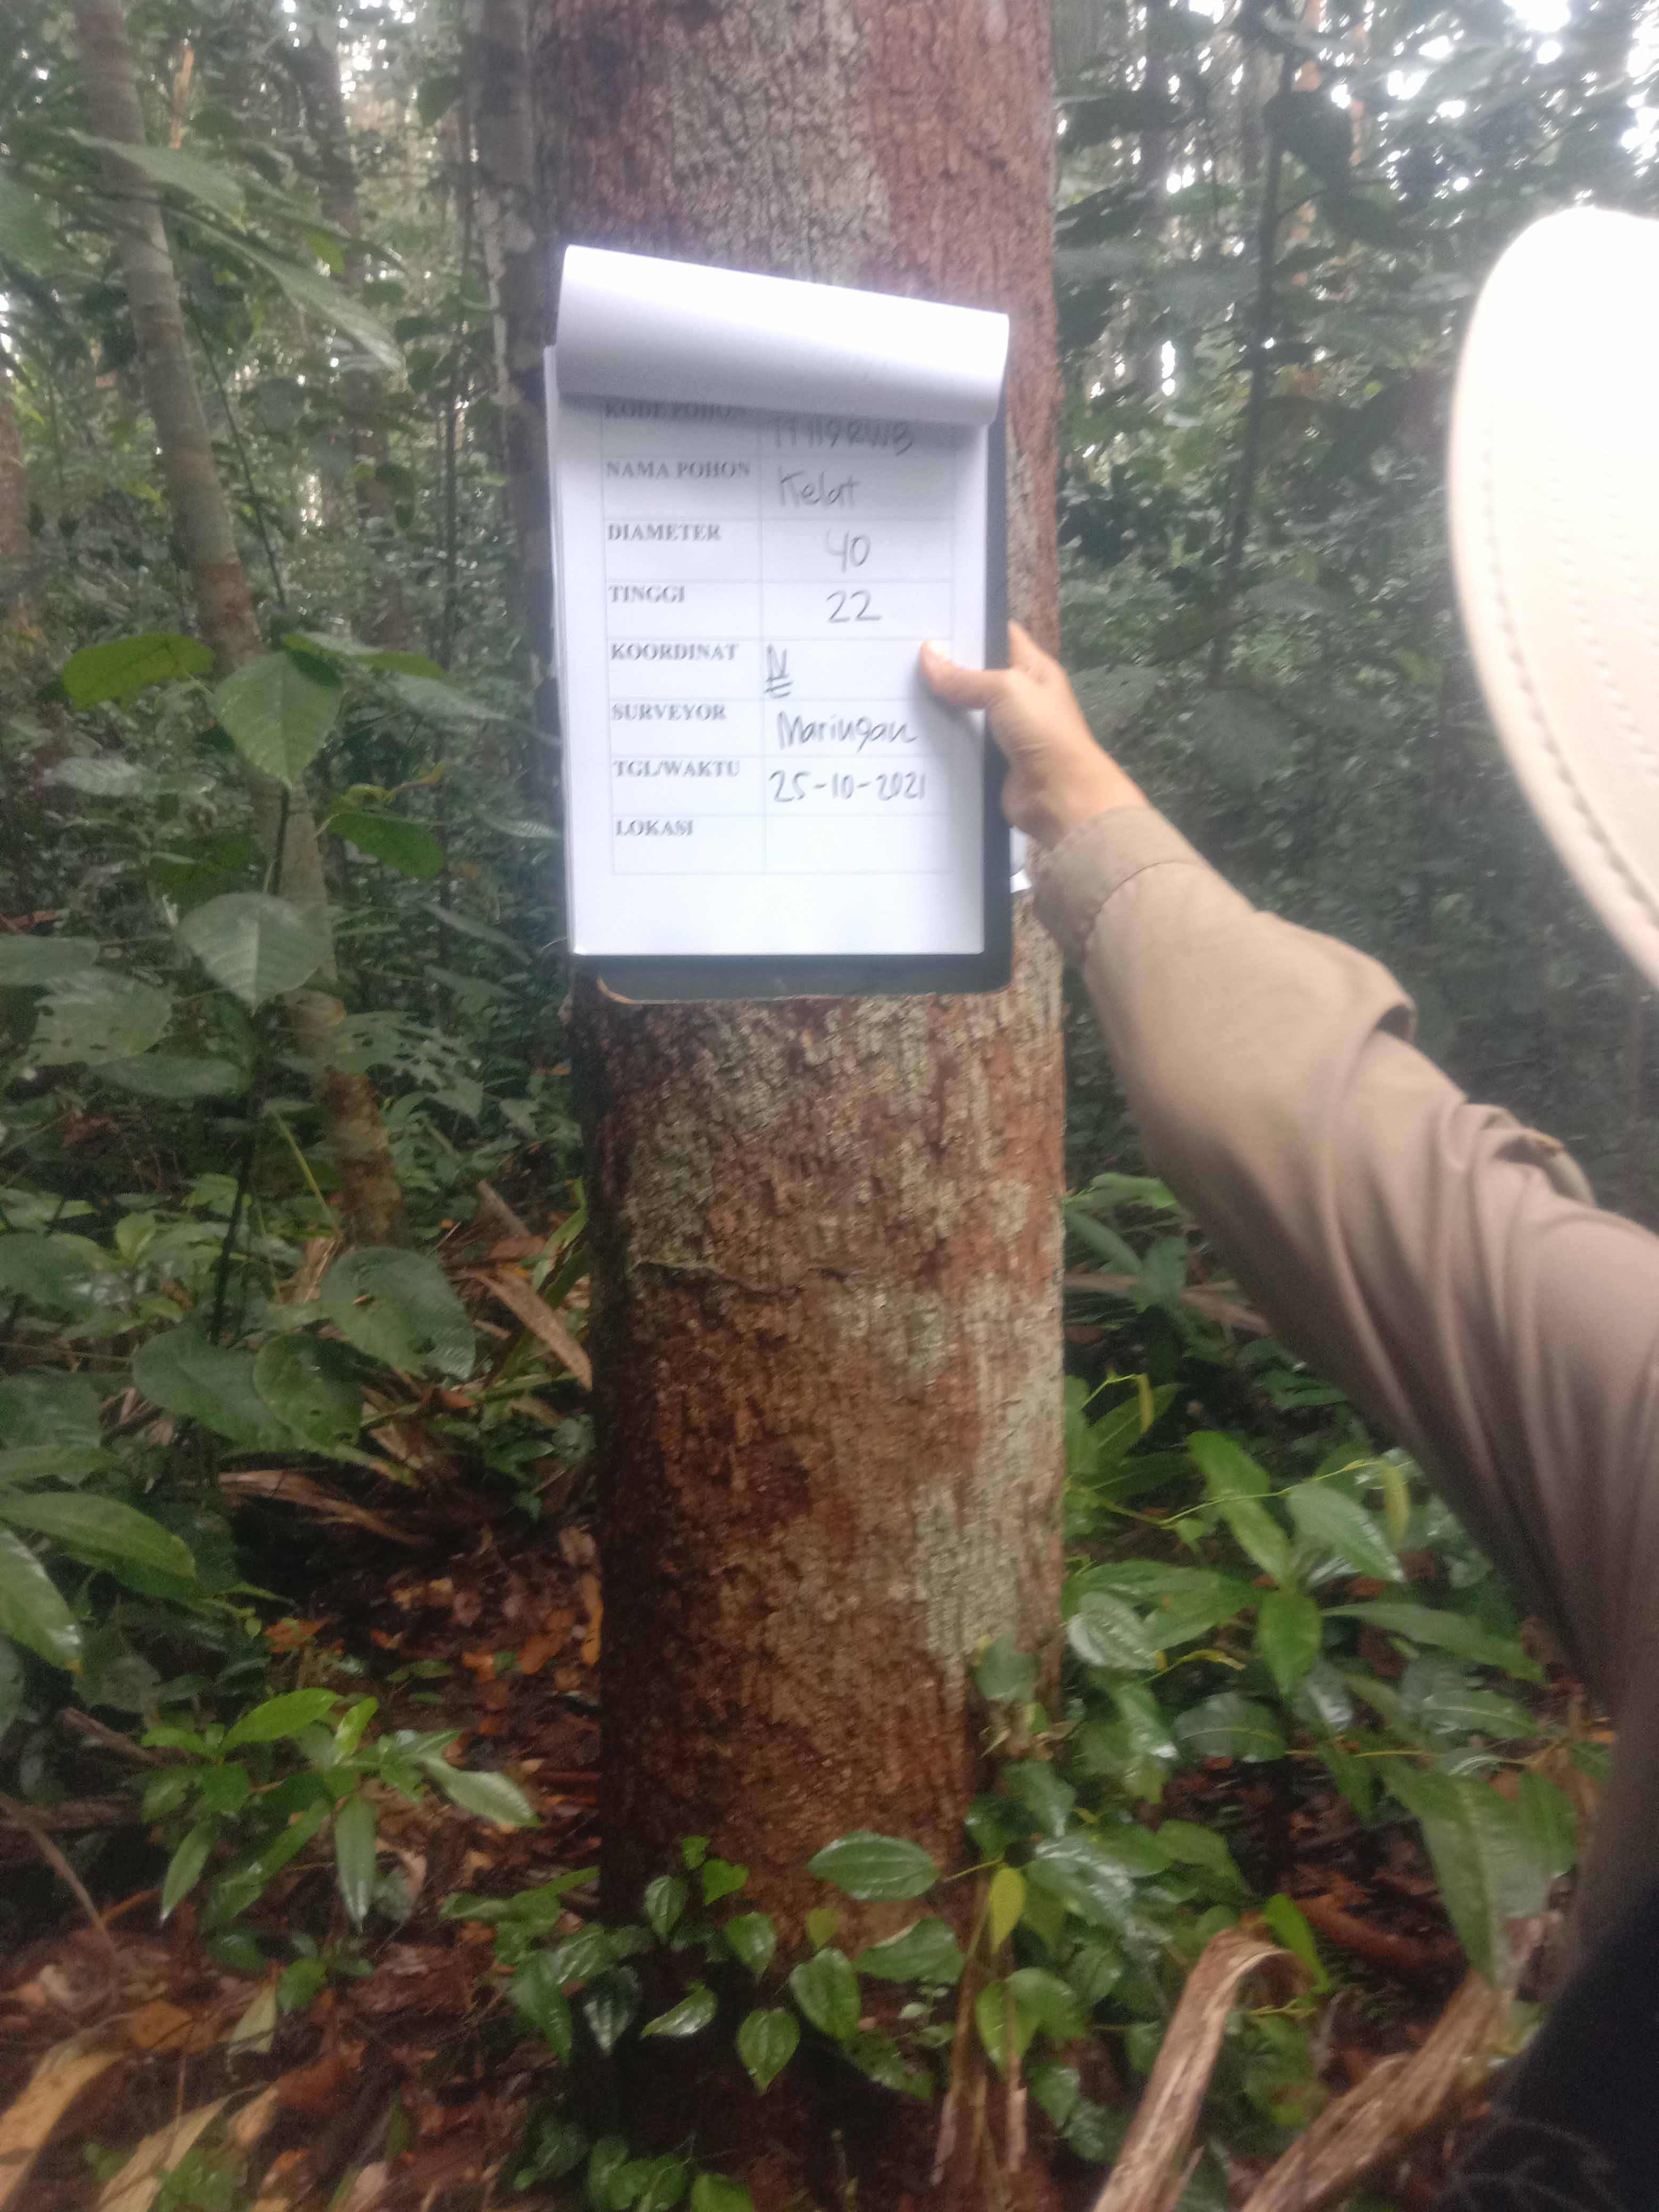 KODE POHON
NAMA POHON Kelat
DIAMETER 40
TINGGI 22
KOORDINAT N
SURVEYOR Maringan
TGL/WAKTU 25-10-2021
LOKASI